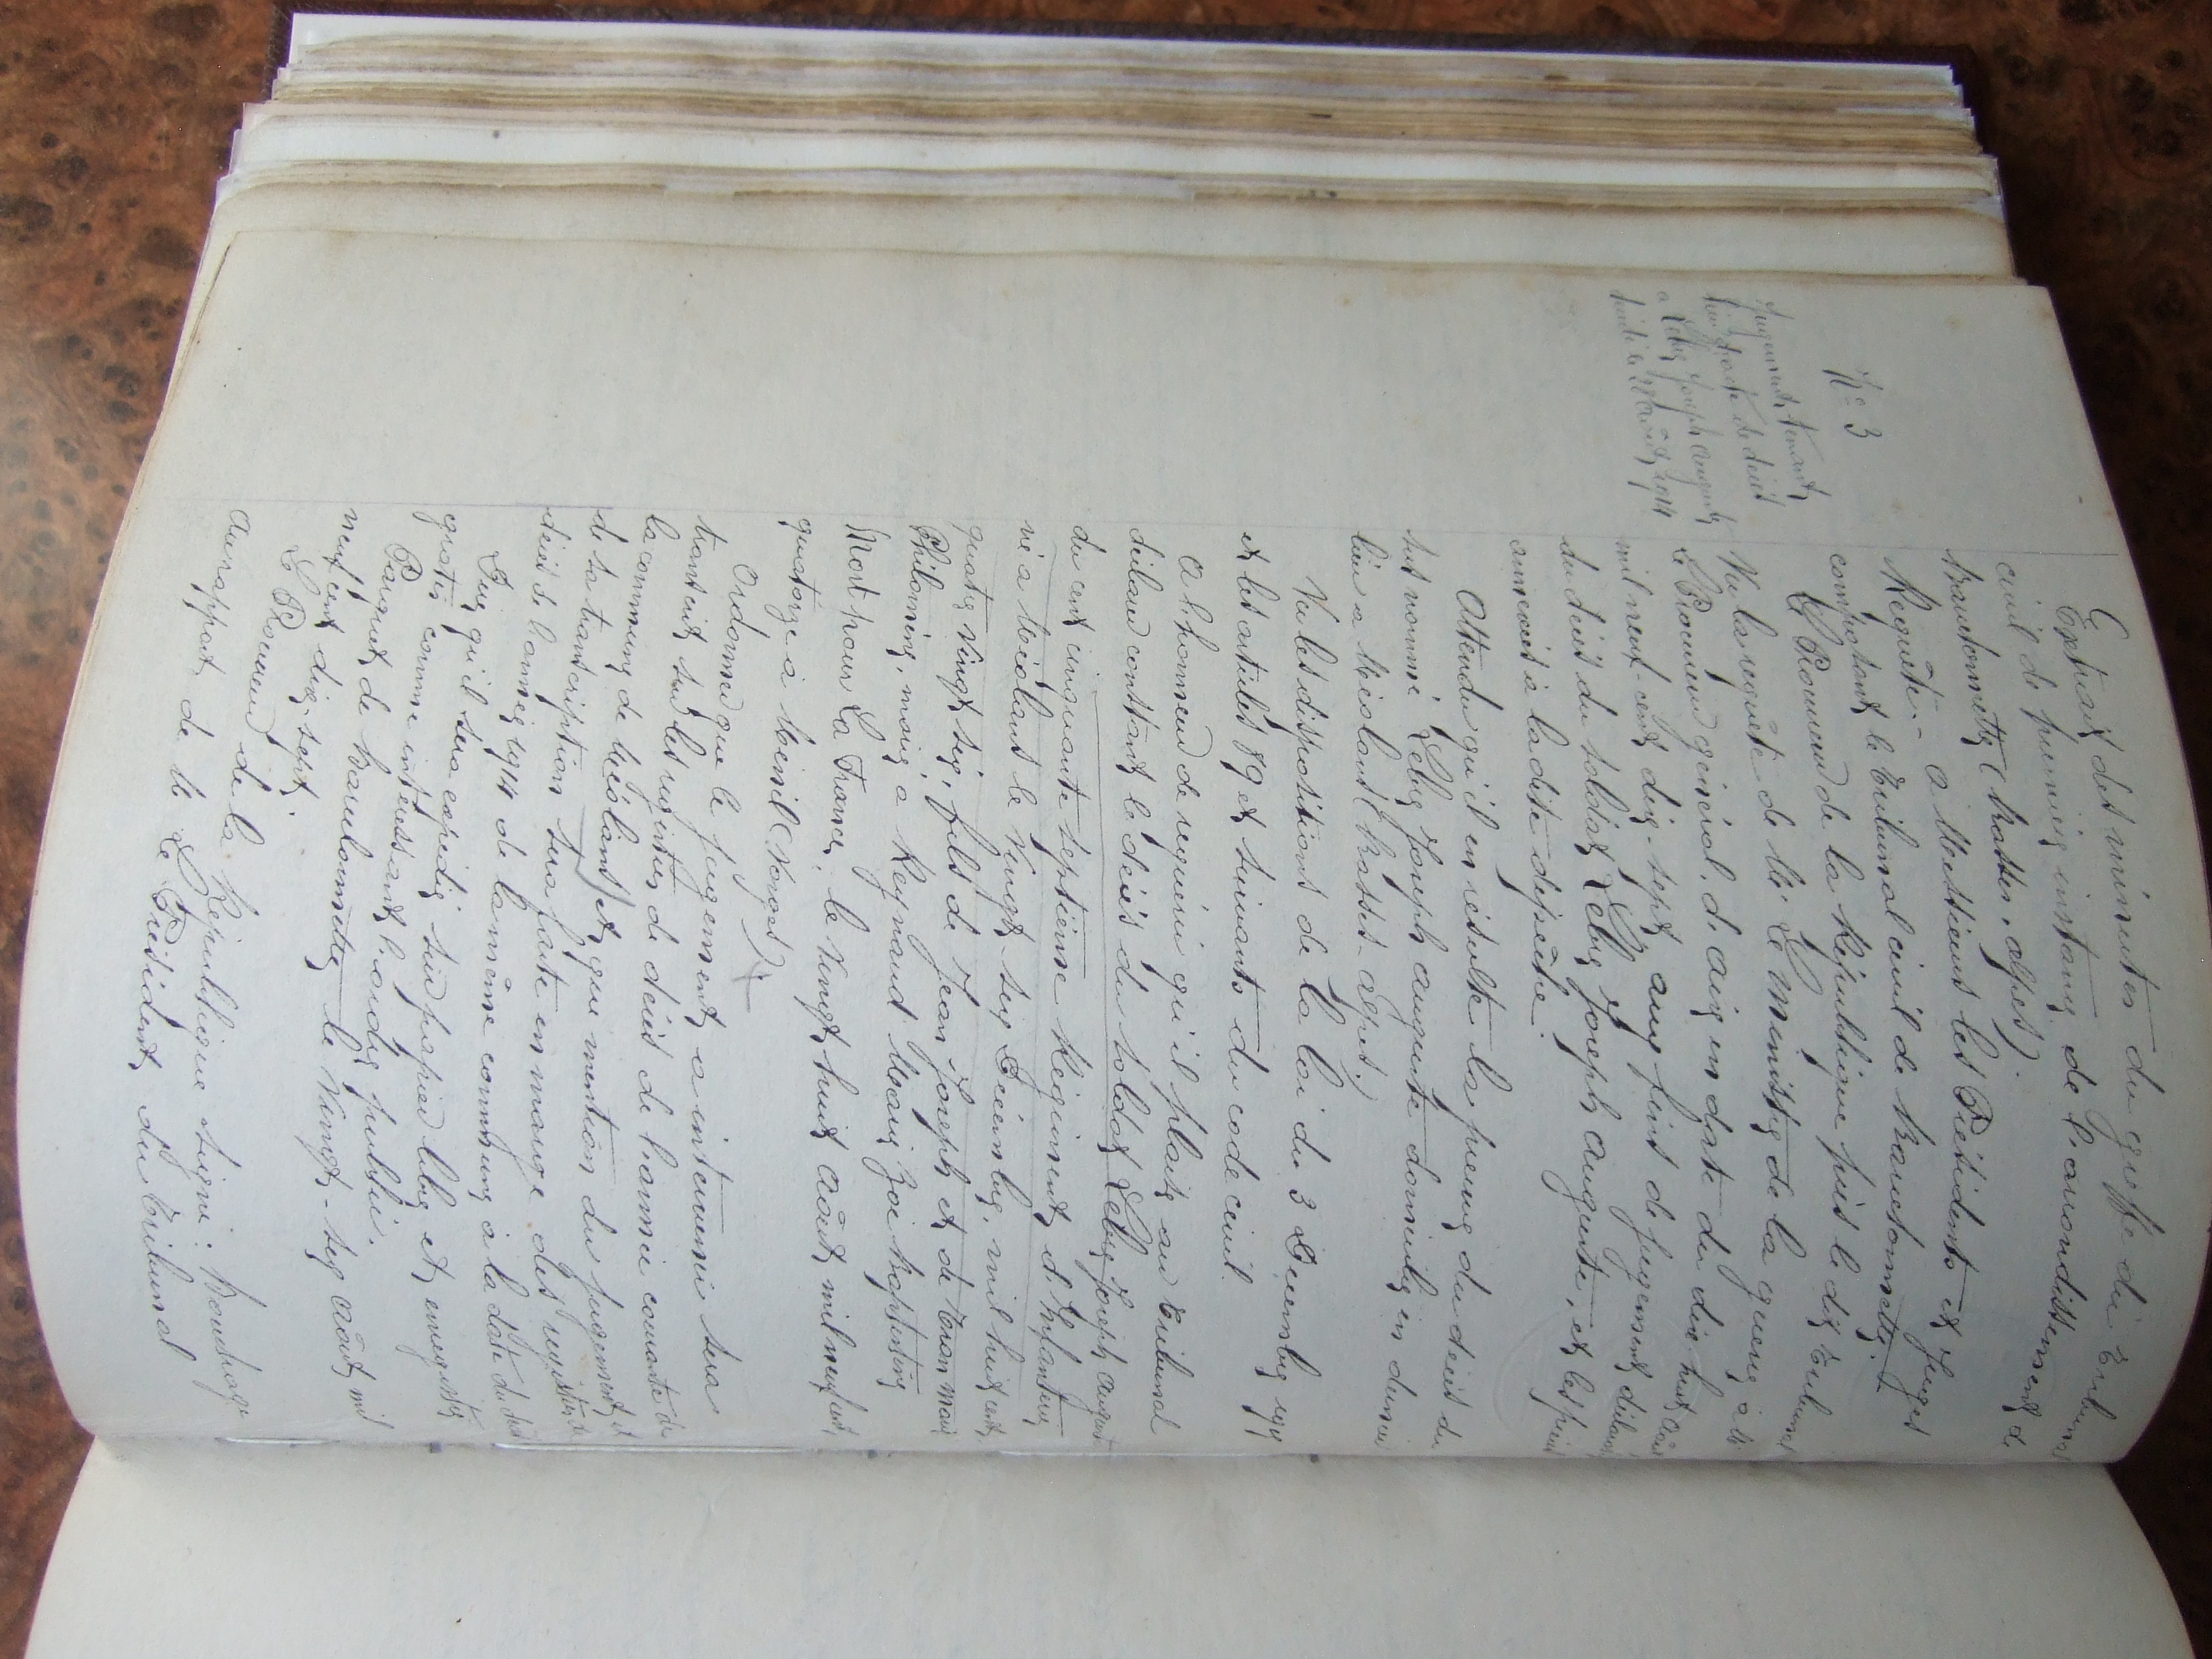 N° 3
Jugement tenant
lieu d'acte de décès
à Leby Joseph Auguste
décédé le 28 Août 1914
Extrait des minutes du greffe du Tribunal
civil de première instance de l'arrondissement de
Barcelonnette (Basses-Alpes)
Requête - A Messieurs les Présidents et Juges
composant le Tribunal civil de Barcelonnette.
Le Procureur de la République près le dit Tribunal
Vu la requête de Mr Le Ministre de la guerre à Mr
le Procureur général d'Aix en date du dix huit Août
mil neuf cent dix-sept aux fins de jugement déclaratif
du décès du soldat Leby Joseph Auguste, et les pièces
annexées à la dite dépêche.
Attendu qu'il en résulte la preuve du décès du
sus nommé Leby Joseph Auguste domicilié en dernier
lieu à Méolans (Basses-Alpes)
Vu les dispositions de la loi du 3 Décembre 1915
et les articles 89 et suivants du code civil.
A l'honneur de requérir qu'il plaise au Tribunal
déclarer constant le décès du soldat Leby Joseph Auguste
du cent cinquante septième Régiment d'Infanterie
né à Méolans le vingt six Décembre mil huit cent
quatre vingt six, fils de Jean Joseph et de Tron Marie
Philomène, marié à Reynaud Marie Zoé Baptistine
Mort pour La France, le vingt huit août mil neuf cent
quatorze à Ménil (Vosges)
Ordonner que le jugement à intervenir sera
transcrit sur les registres de décès de l'année courante de
la commune de Méolans et que mention du jugement et
de sa transcription sera faite en marge des registres de
décès de l'année 1914 de la même commune à la date du décès
Dire qu'il sera expédié sur papier libre et enregistré
gratis comme intéressant l'ordre public.
Parquet de Barcelonnette le Vingt-six août mil
neuf cent dix-sept.
Le Procureur de la République signé:
Au rapport de Mr Le Président du Tribunal